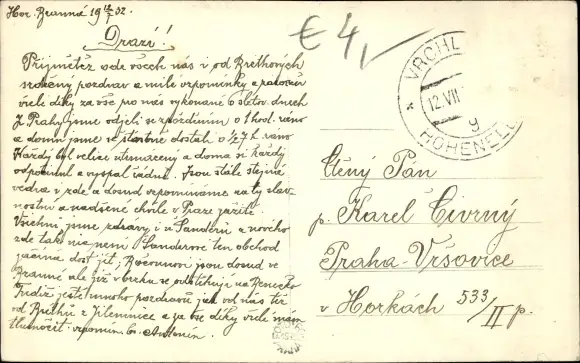 Hor. Branná 19 12/7 32.
Drazí!
Přijmětež ode všech nás i od Brethových
srdečný pozdrav a milé vzpomínky a zároveň
vřelé díky za vše pro nás vykonané o sletov. dnech
Z Prahy jsme odjeli se zpožděním o 1 hod. ráno
a domů jsme se šťastně dostali o 1/2 7 h. ráno
Každý byl velice utrmácený a doma si každý
odpočinul a vyspal řádně. Jsou stále stejná
vedra i zde a dosud vzpomínáme na ty slav-
nostní a nadšené chvíle v Praze zažité.
Všichni jsme zdrávy i u Sanderů a nového
zde tak nic není Sanderové ten obchod
začíná dost jít, jsou dosud ve
Branné ale již v brzku se odstěhují na Benecko
Tudíž ještě mnoho pozdravů jak od nás též
od Brethů z Jilemnice a za vše díky vřelé mám
tlumočit. vzpomín. br. Antonín.
€ 4,
VRCHL
12.VII
9
HOHENEL
Ctěný Pán
p. Karel Čivrný
Praha-Vršovice
v Horkách 533/II p.